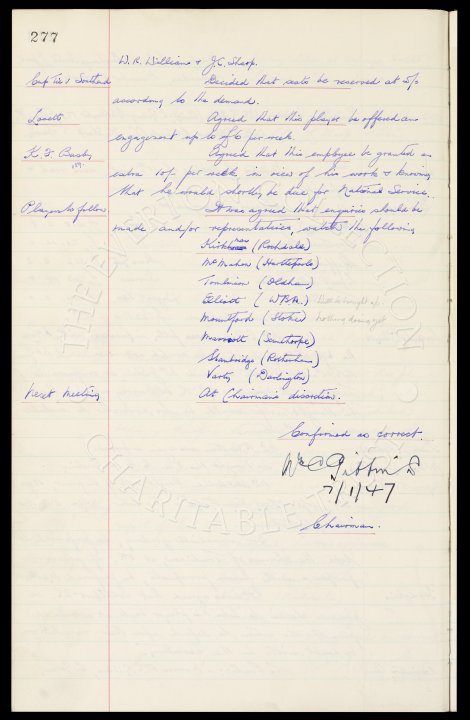 277
W. R. Williams & J.C. Sharp.
Cup Tie v Southend Decided that seats be reserved at 5/-
according to the demand.
Lovett Agreed that this player be offered an
engagement up to £6 per week
K. I. Busby Agreed that this employee be granted an
extra 10/- per week, in view of his work & knowing
that he would shortly be due for National Service.
Players to follow It was agreed that enquiries should be
made and/or representatives watch the following
(Rochdale)
McMahon (Hartlepools)
Tomlinson (Oldham)
Elliott (W.B.A.)
Mountford (Stoke) nothing doing yet
Marriott (Scunthorpe)
Stanbridge (Rotherham)
Varty (Darlington)
Next Meeting At Chairman's discretion.
Confirmed as correct.
Wm C Gibbins
7/1/47
Chairman.
THE EVERTON COLLECTION
CHARITABLE TRUST